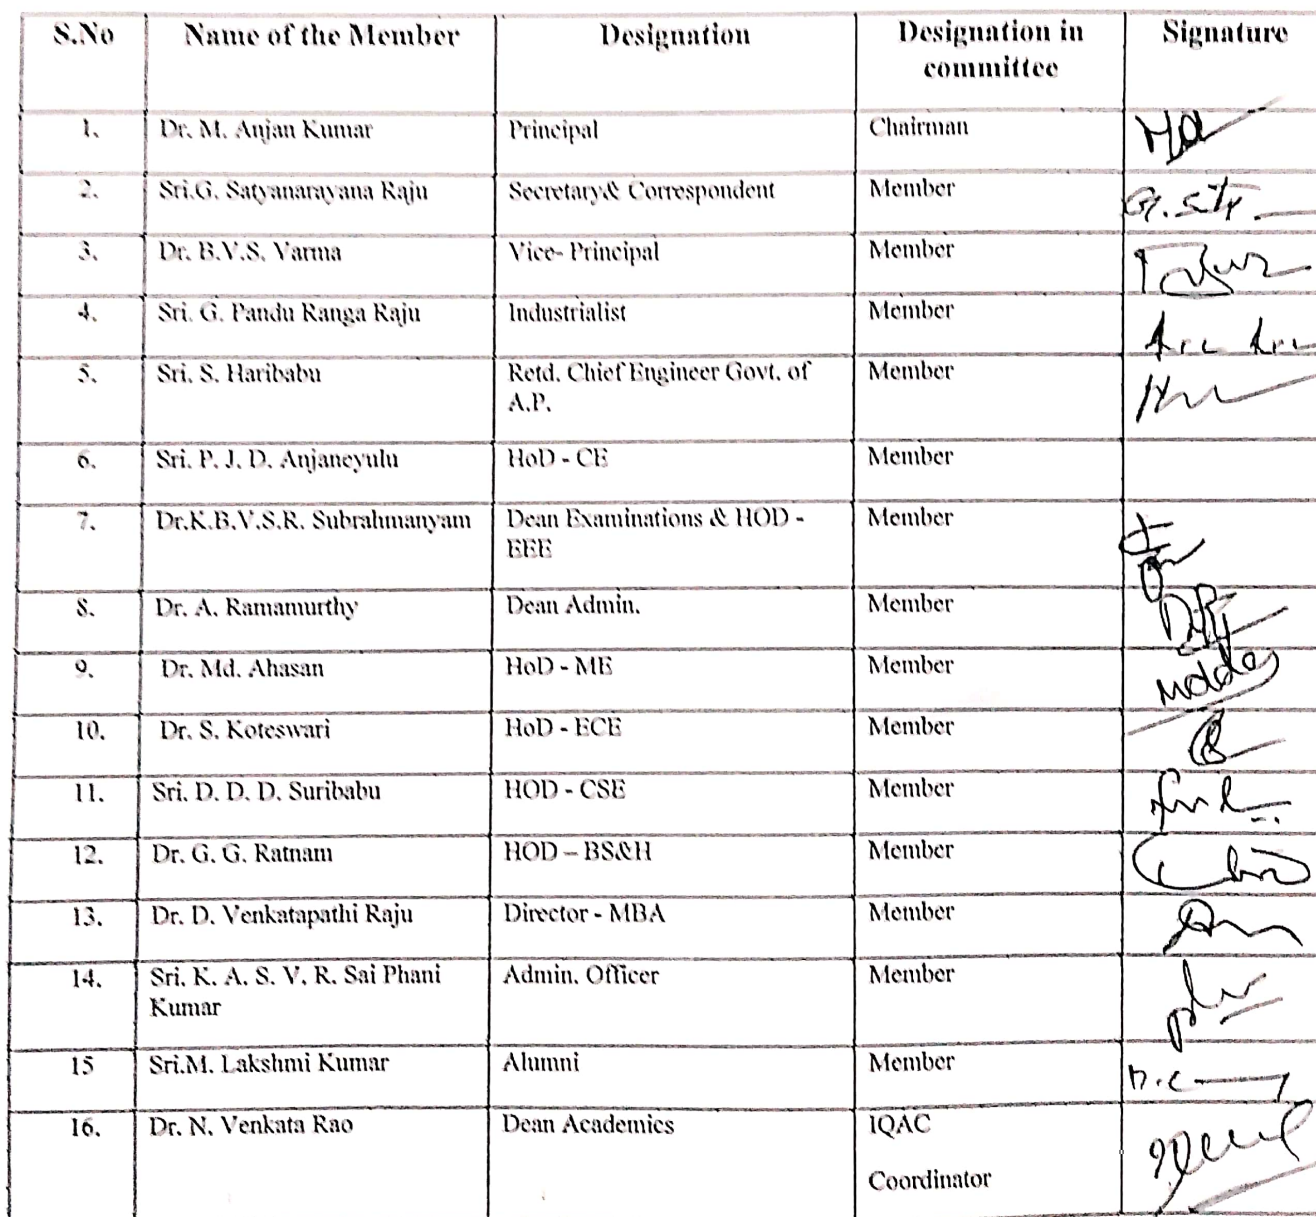 S.No Name of the Member Designation Designation in Signature
committee
1. Dr. M. Anjan Kumar Principal Chairman
2. Sri.G. Satyanarayana Raju Secretary& Correspondent Member G.
3. Dr. B.V.S. Varma Vice- Principal Member
4. Sri. G. Pandu Ranga Raju Industrialist Member
5. Sri. S. Haribabu Retd. Chief Engineer Govt. of Member
A.P.
6. Sri. P. J. D. Anjaneyulu HoD - CE Member
7. Dr.K.B.V.S.R. Subrahmanyam Dean Examinations & HOD - Member
EEE
8. Dr. A. Ramamurthy Dean Admin. Member
9. Dr. Md. Ahasan HoD - ME Member
10. Dr. S. Koteswari HoD - ECE Member
11. Sri. D. D. D. Suribabu HOD - CSE Member
12. Dr. G. G. Ratnam HOD – BS&H Member
13. Dr. D. Venkatapathi Raju Director - MBA Member
14. Sri. K. A. S. V. R. Sai Phani Admin. Officer Member
Kumar
15 Sri.M. Lakshmi Kumar Alumni Member
16. Dr. N. Venkata Rao Dean Academics IQAC
Coordinator